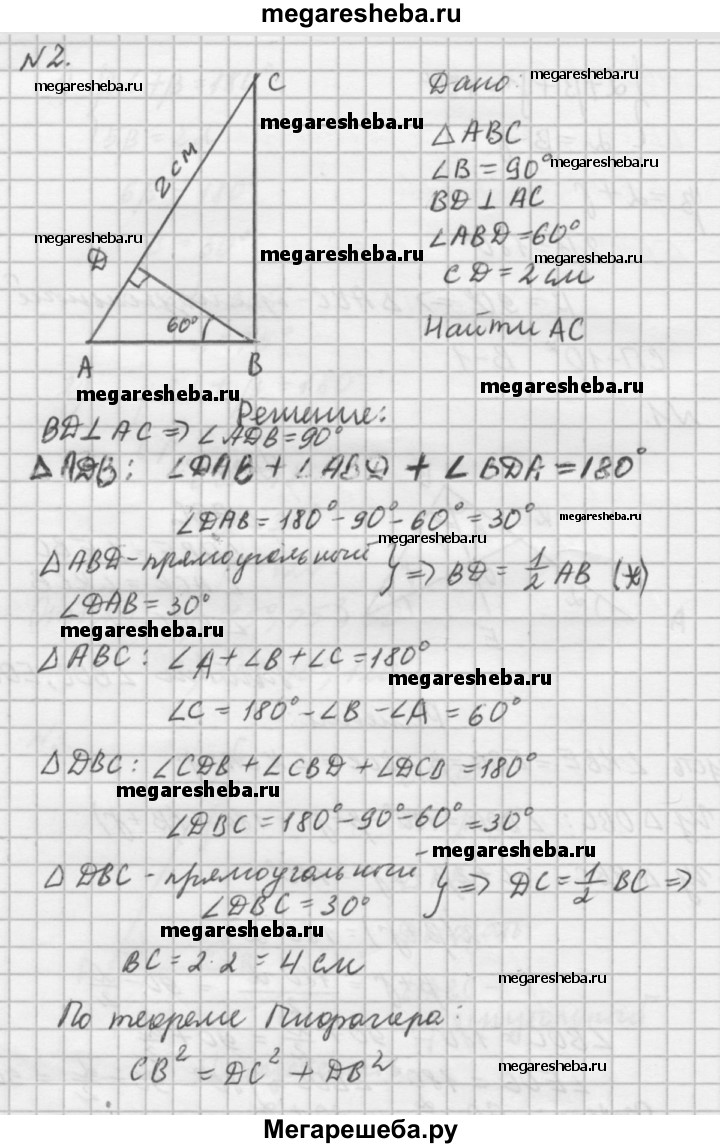 megaresheba.ru
N2.
megaresheba.ru
C
Дано:
megaresheba.ru
megaresheba.ru
△ABC
∠B = 90°
megaresheba.ru
2 см
BD ⊥ AC
megaresheba.ru
∠ABD = 60°
megaresheba.ru
D
megaresheba.ru
CD = 2 см
60°
Найти AC
A
B
megaresheba.ru
megaresheba.ru
Решение:
BD ⊥ AC => ∠ADB = 90°
△ADB: ∠DAB + ∠ABD + ∠BDA = 180°
∠DAB = 180° - 90° - 60° = 30°
megaresheba.ru
megaresheba.ru
△ABD - прямоугольный } => BD = 1/2 AB (*)
∠DAB = 30°
megaresheba.ru
△ABC: ∠A + ∠B + ∠C = 180°
megaresheba.ru
∠C = 180° - ∠B - ∠A = 60°
△DBC: ∠CDB + ∠CBD + ∠DCB = 180°
megaresheba.ru
∠DBC = 180° - 90° - 60° = 30°
megaresheba.ru
△DBC - прямоугольный } => DC = 1/2 BC =>
∠DBC = 30°
megaresheba.ru
BC = 2·2 = 4 см
megaresheba.ru
По теореме Пифагора:
CB² = DC² + DB²
megaresheba.ru
Мегарешеба.ру